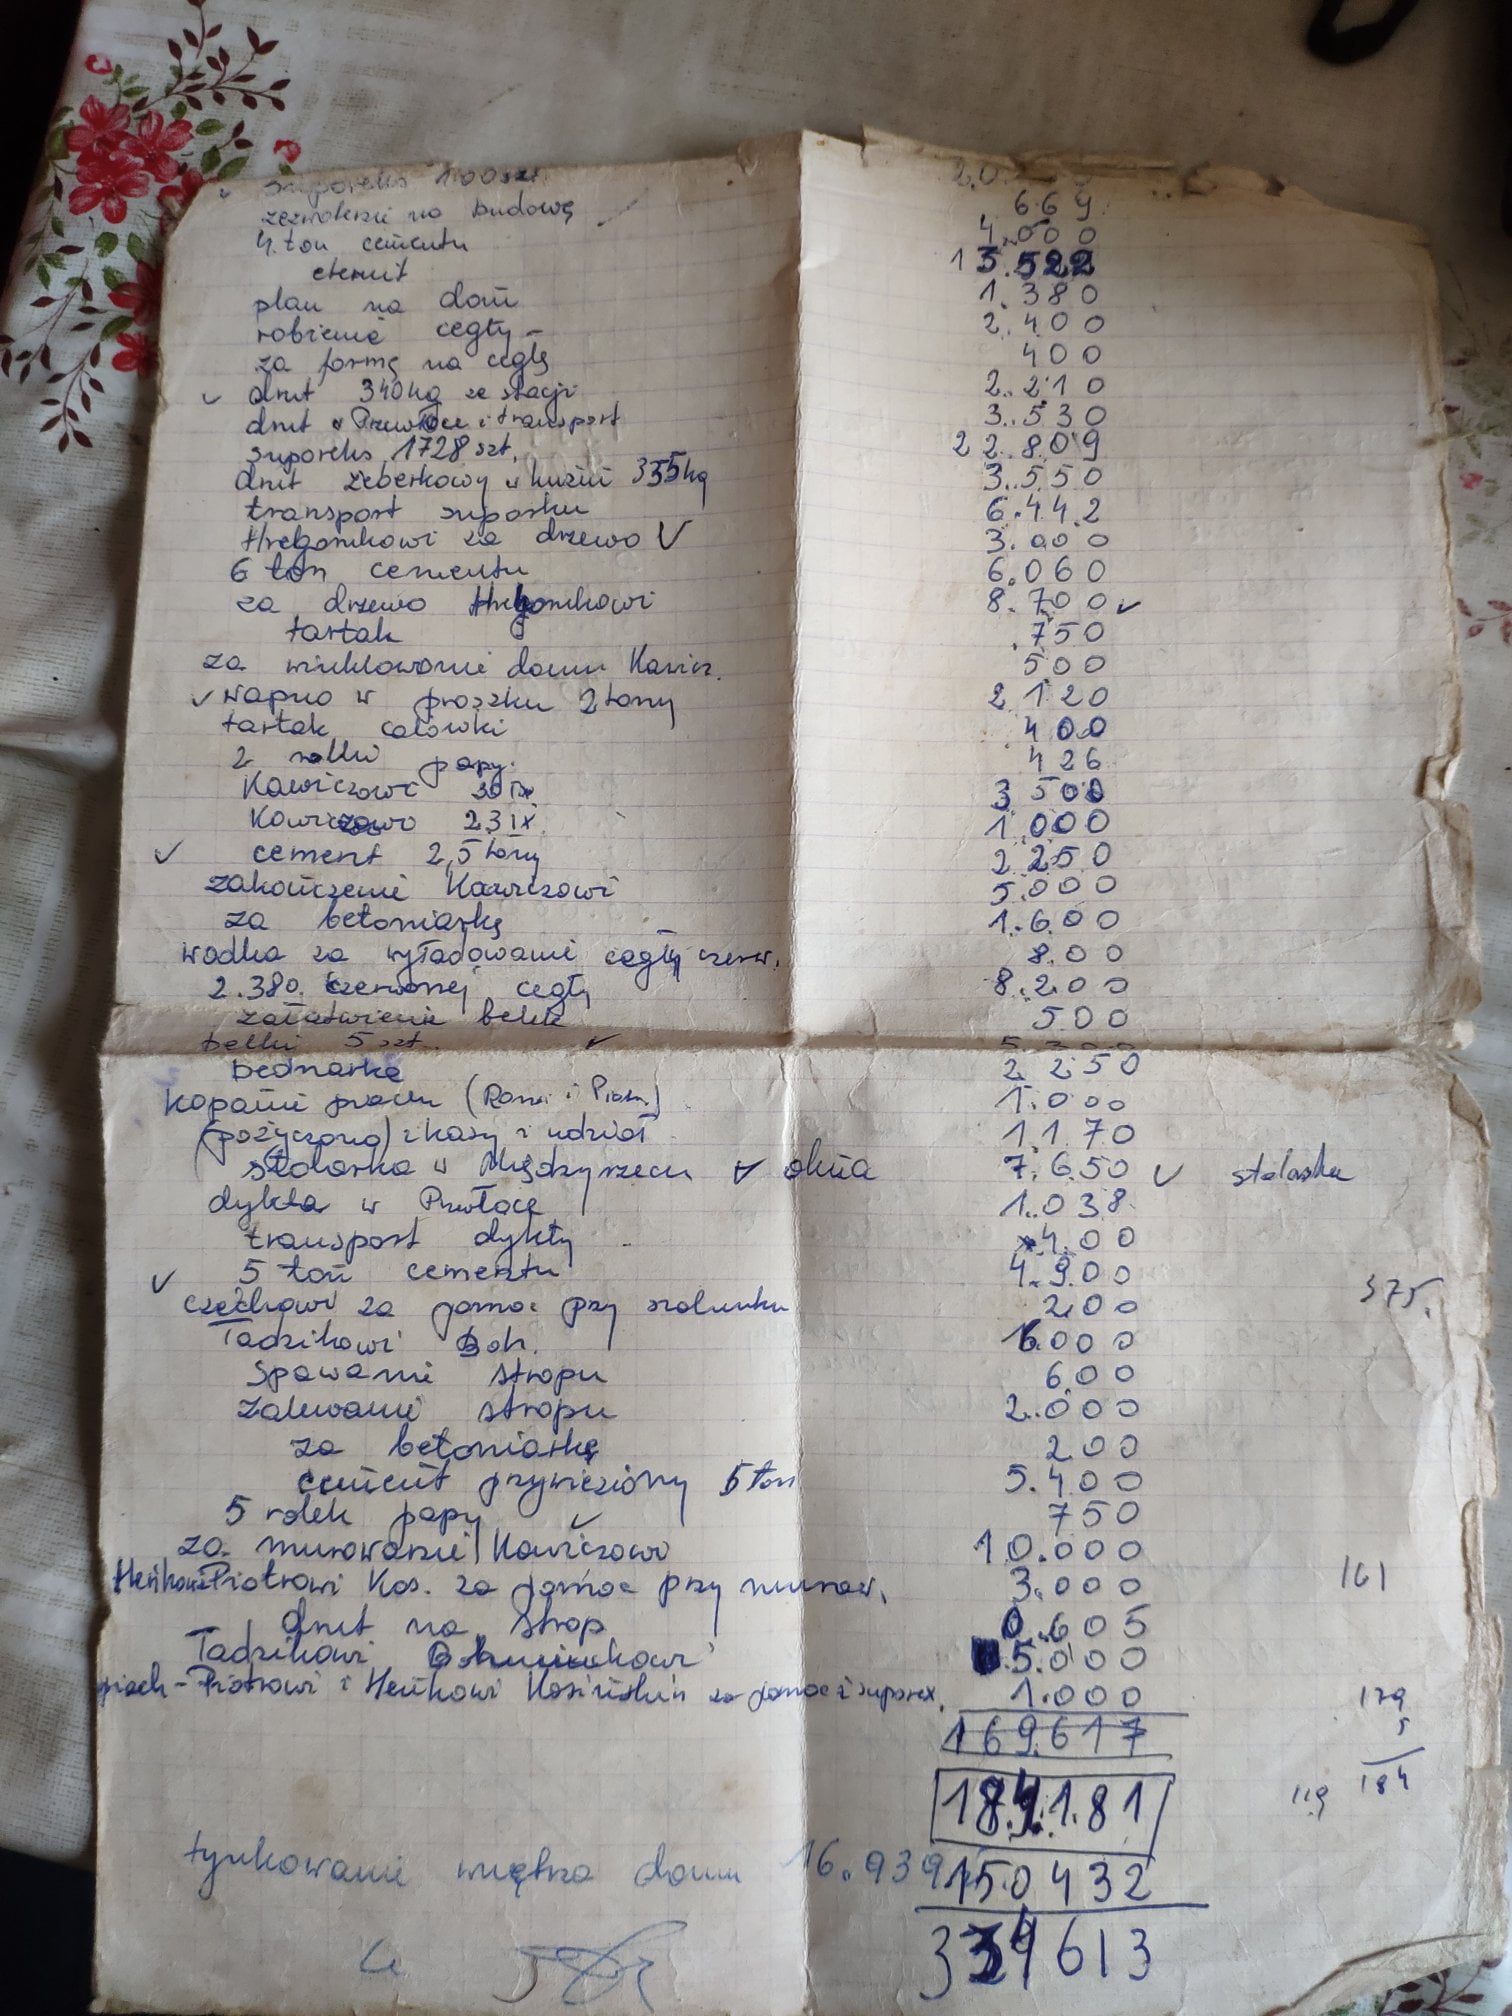 suporeks 100 szt.
zezwolenie na budowę 669
4. ton cementu 4.000
eternit 13.522
plan na dom 1.380
robienie cegły - 2.400
za formę na cegłę 400
✓ drut 340 kg ze stacji 2.210
drut w Przewłoce i transport 3.530
suporeks 1728 szt. 22.809
drut żeberkowy u kuzni 355 kg 3.550
transport suporku 6.442
Hregorukowi za drzewo ✓ 3.000
6 ton cementu 6.060
za drzewo Hregorukowi 8.700 ✓
tartak .750
za winklowanie domu Kawicz. 500
✓ wapno w proszku 2 tony 2 120
tartak calówki 400
2 rolki papy. 426
Kawiczowi 30 IX 3 500
Kawiczowi 23 IX. 1.000
✓ cement 2,5 tony 2 250
zakończenie Kawiczowi 5.000
za betoniarkę 1.600
wodka za wyładowanie cegły czerw. 8.00
2.380. czerwonej cegły 8.200
załatwienie belek 500
belki 5 szt. ✓
bednarka 2 250
kopanie pracu 1.000
(pożyczono) z kasy i udział 1 1 70
stolarka w Międzyrzecu ✓ okna 7.650 ✓ stolarka
dykta w Przewłoce 1.038
transport dykty 4.00
✓ 5 ton cementu 4.900
za pomoc przy szalunku 2.00 375.
Tadzikowi Boh. 1.6000
spawanie stropu 600
zalewanie stropu 2.000
za betoniarkę 200
cement przywieziony 5 ton 5.400
5 rolek papy ✓ 750
za murowanie Kawiczowi 10.000
Heńkowi Piotrowi Kos. za pomoc przy murow. 3.000 161
drut na strop 0.605
Tadzikowi 5.000
Piotrowi i Heńkowi za pomoc i suporex. 1.000 179
169.617 5
184.181 119 184
tynkowanie wnętrza domu 16.939 150 432
334 613